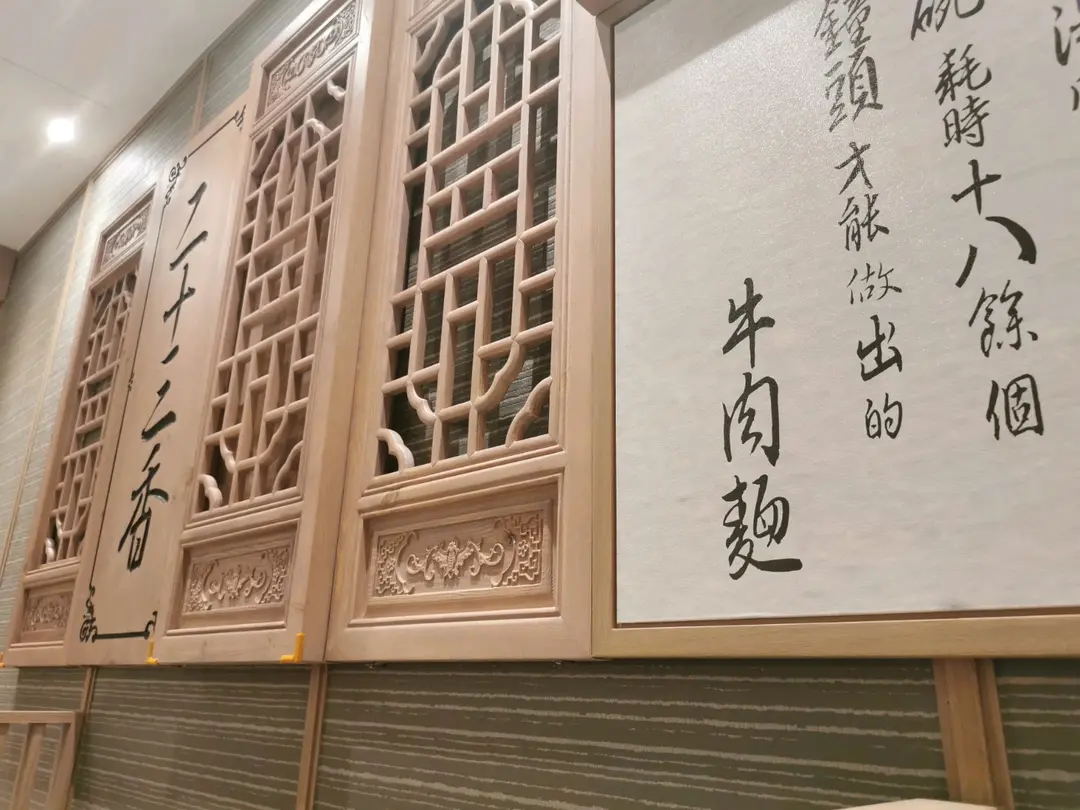 碗耗時十八餘個
鐘頭才能做出的
牛肉麵
二十三香